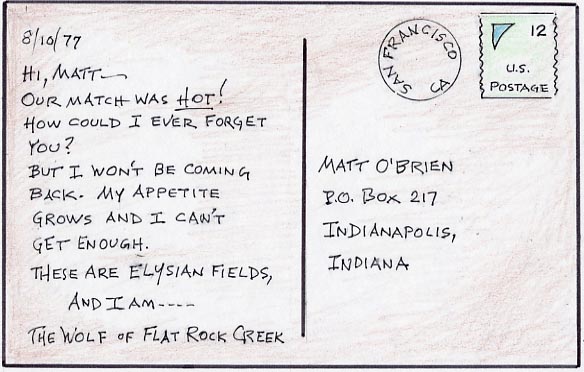 8/10/77
HI, MATT—
OUR MATCH WAS HOT!
HOW COULD I EVER FORGET
YOU?
BUT I WON'T BE COMING
BACK. MY APPETITE
GROWS AND I CAN'T
GET ENOUGH.
THESE ARE ELYSIAN FIELDS,
AND I AM----
THE WOLF OF FLAT ROCK CREEK
SAN FRANCISCO
CA
12
U.S.
POSTAGE
MATT O'BRIEN
P.O. BOX 217
INDIANAPOLIS,
INDIANA